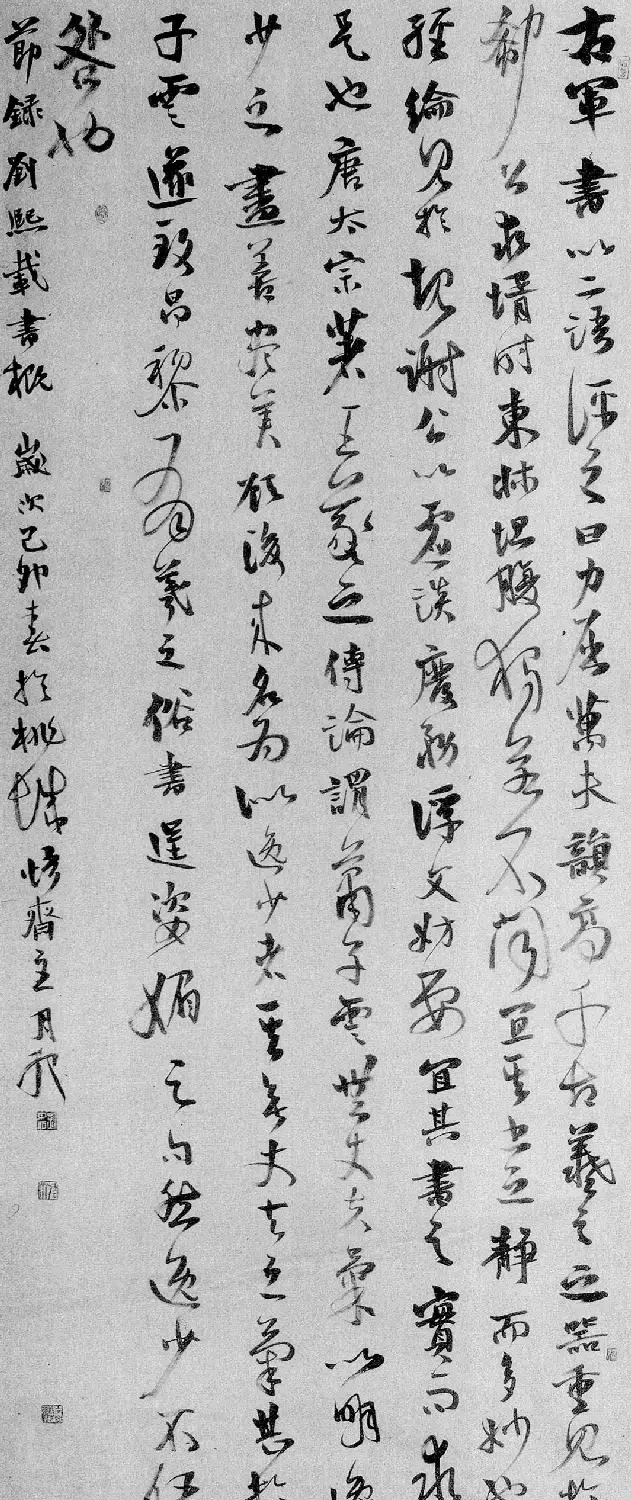 右軍書以二語評之曰力屈萬夫韻高千古羲之之器重見於
郗公求壻時東牀坦腹獨若不聞宜其書之靜而多妙也
經綸見於規謝公以虛談廢務浮文妨要宜其書之實而求
是也唐太宗著王羲之傳論謂蕭子雲無丈夫氣以明逸
少之盡善盡美顧後來名為似逸少者其無丈夫之氣甚於
子雲遂致昌黎有羲之俗書逞姿媚之句然逸少不任
咎也
節錄劉熙載書概 歲次己卯春於桃城 齋主月